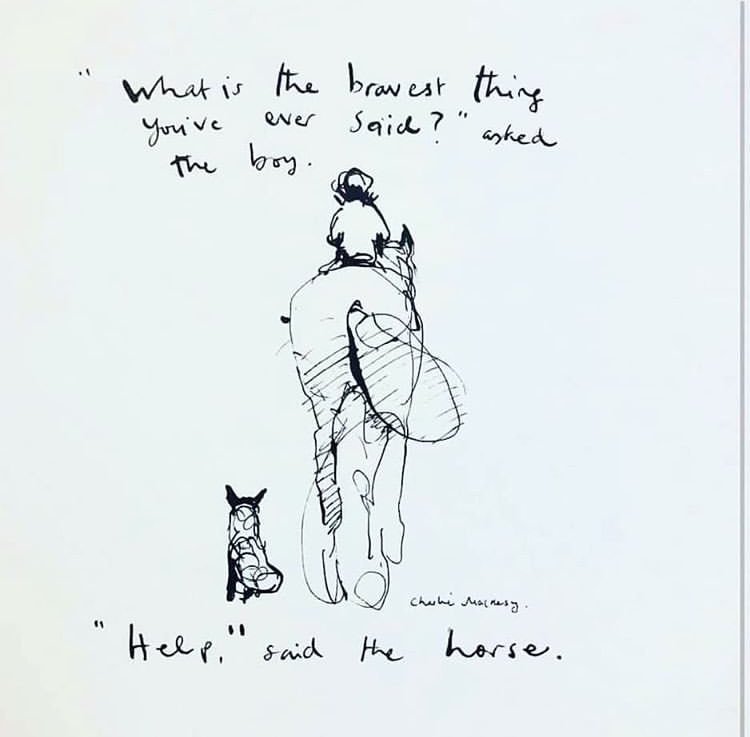 "What is the bravest thing
you've ever said?" asked
the boy.
Charlie Mackesy.
"Help," said the horse.